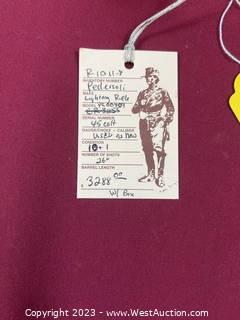 R-10-11-8
INVENTORY NUMBER
Pedersoli
MAKE
Lightning Rifle
MODEL
SERIAL NUMBER
45 colt
GAUGE/CHOKE - CALIBER
Used as new
CONDITION
10+1
NUMBER OF SHOTS
26"
BARREL LENGTH
$ 3288.00
w/ Box
Copyright 2023 - www.WestAuction.com